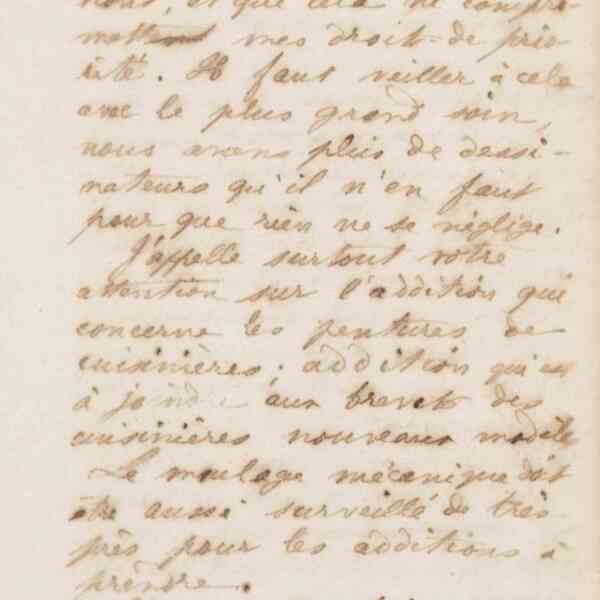 nous, et que cela ne compro-
mettent mes droit de prio-
rité. Il faut veiller à cela
avec le plus grand soin,
nous avons plus de dessi-
nateurs qu'il n'en faut
pour que rien ne se néglige.
J'appelle surtout votre
attention sur l'addition qui
concerne les pentures de
cuisinières; addition qui est
à joindre aux brevets des
cuisinières nouveaux modèle
Le moulage mécanique doit
être aussi surveillé de très-
près pour les additions à
prendre.